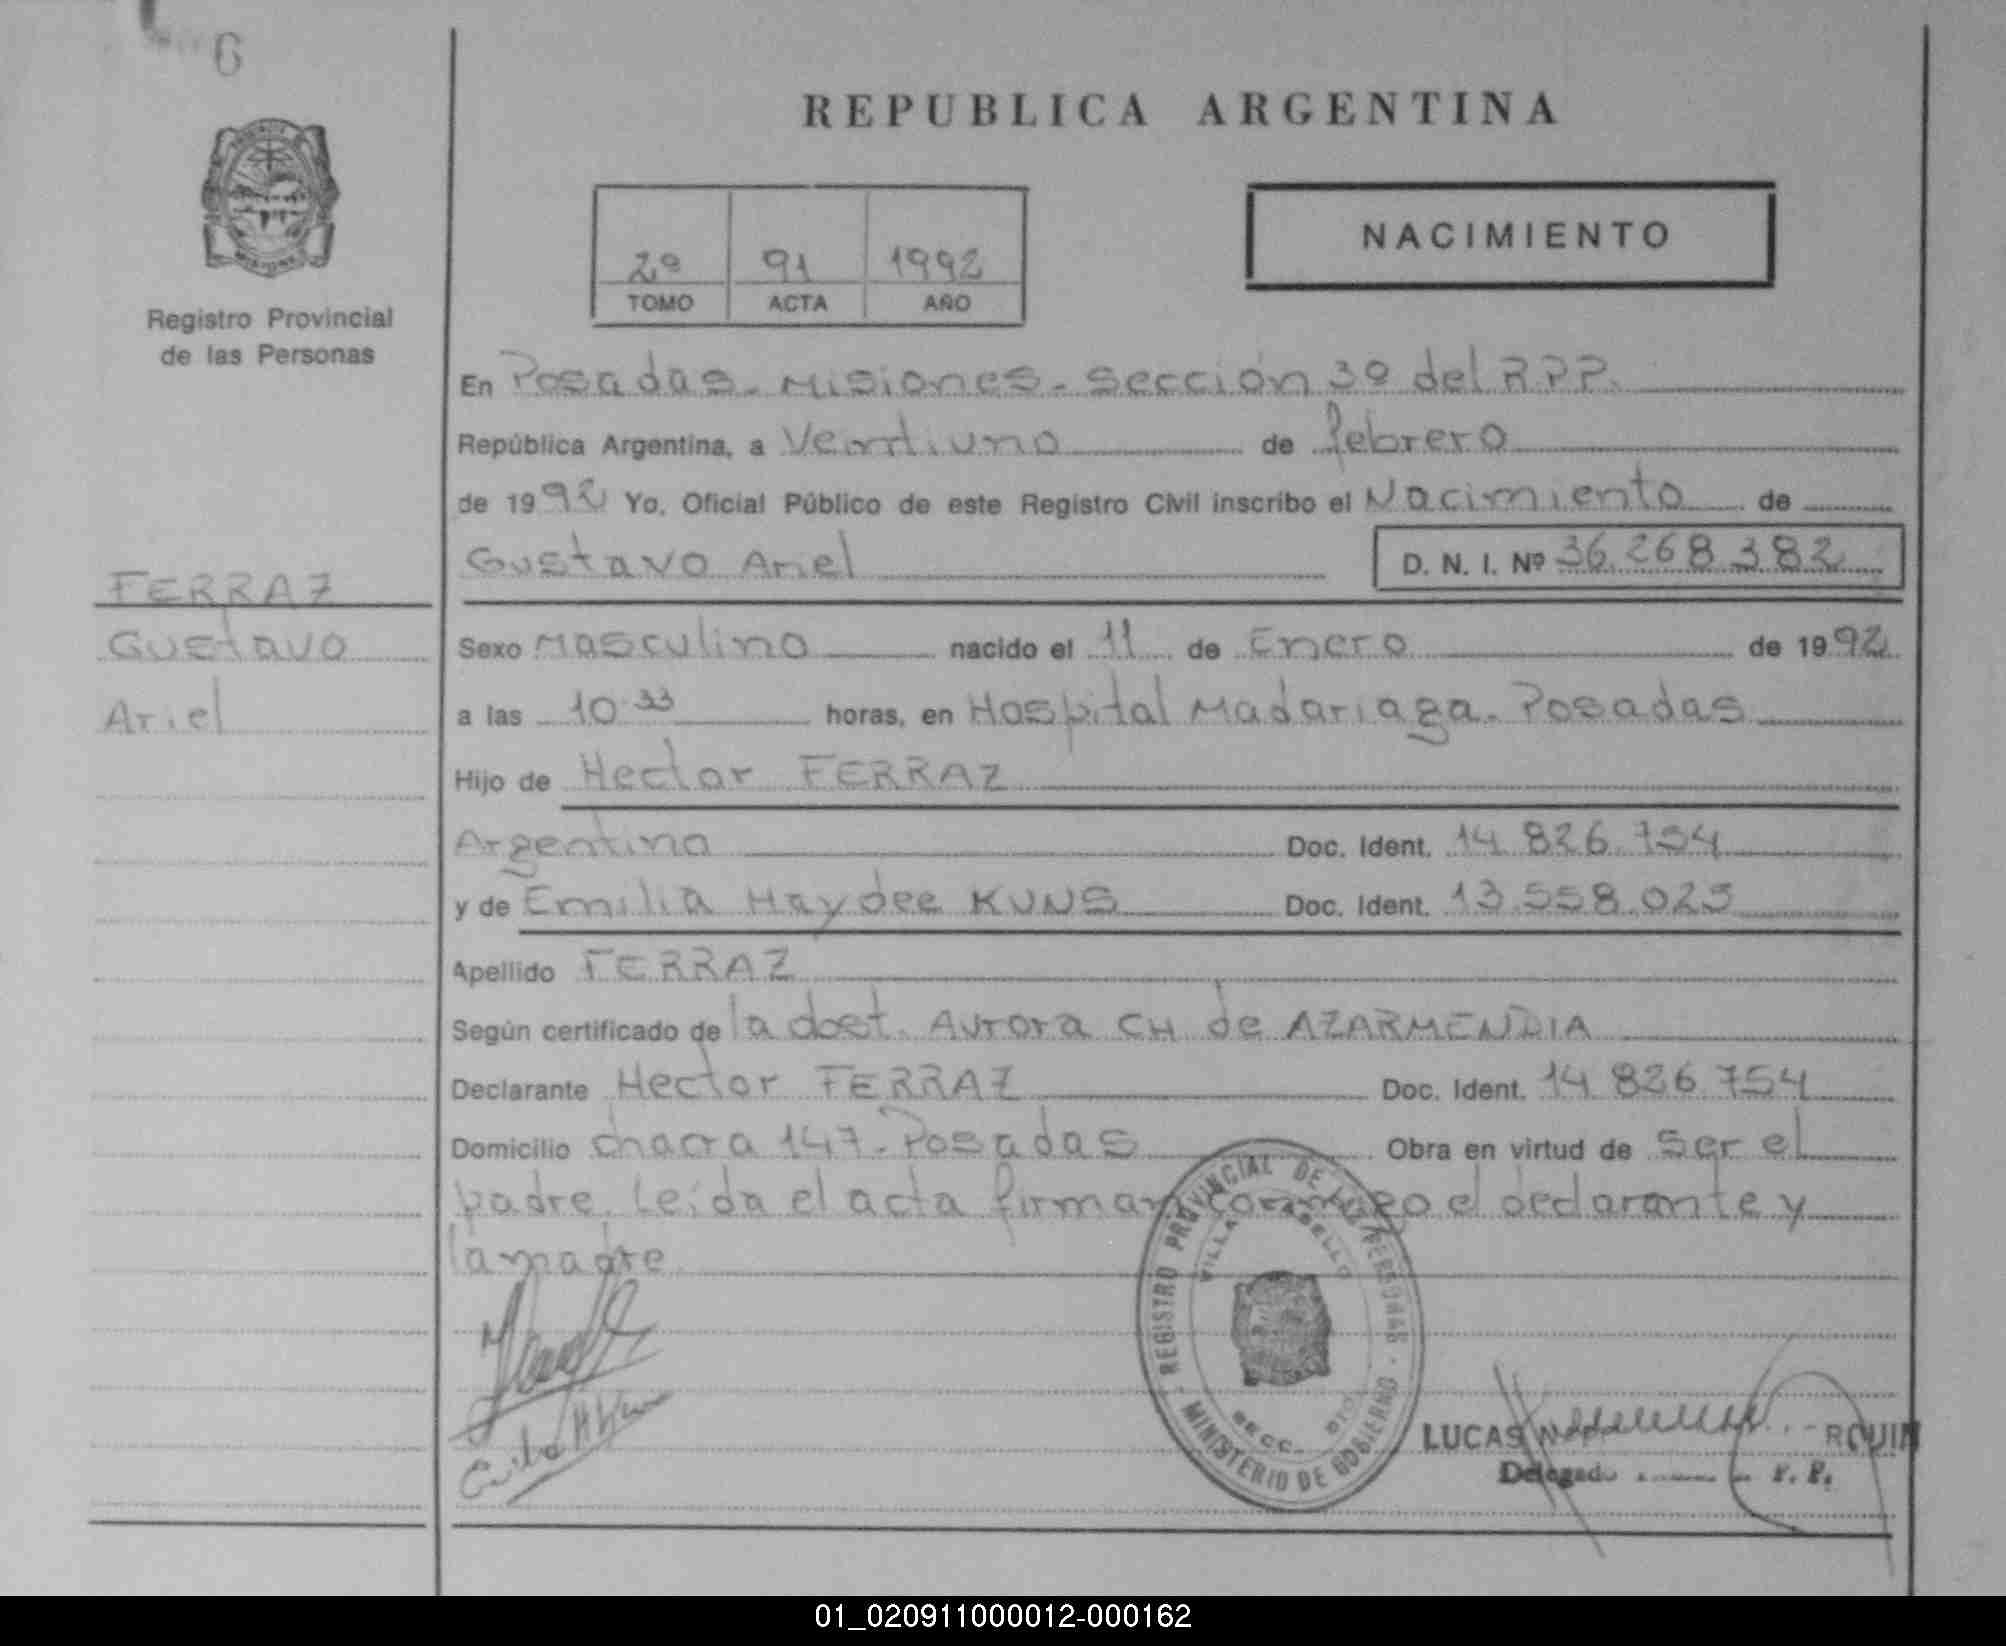 6
REPUBLICA ARGENTINA
NACIMIENTO
2º 91 1992
TOMO ACTA AÑO
Registro Provincial
de las Personas
En Posadas - Misiones - Sección 3º del RPP.
República Argentina, a Veintiuno de febrero
de 1992 Yo, Oficial Público de este Registro Civil inscribo el Nacimiento de
Gustavo Ariel D. N. I. Nº 36.268.382
FERRAZ
Gustavo
Ariel
Sexo Masculino nacido el 11 de Enero de 1992
a las 10.33 horas, en Hospital Madariaga. Posadas
Hijo de Hector FERRAZ
Argentino Doc. Ident. 14.826.754
y de Emilia Haydee KUNS Doc. Ident. 13.558.023
Apellido FERRAZ
Según certificado de la doct. Aurora CH de AZARMENDIA
Declarante Hector FERRAZ Doc. Ident. 14.826.754
Domicilio chacra 147 - Posadas Obra en virtud de ser el
padre. Leída el acta firman conmigo el declarante y
la madre
REGISTRO PROVINCIAL DE LAS PERSONAS - MINISTERIO DE GOBIERNO -
VILLA CABELLO
SECC.
LUCAS
Delegado
01_020911000012-000162